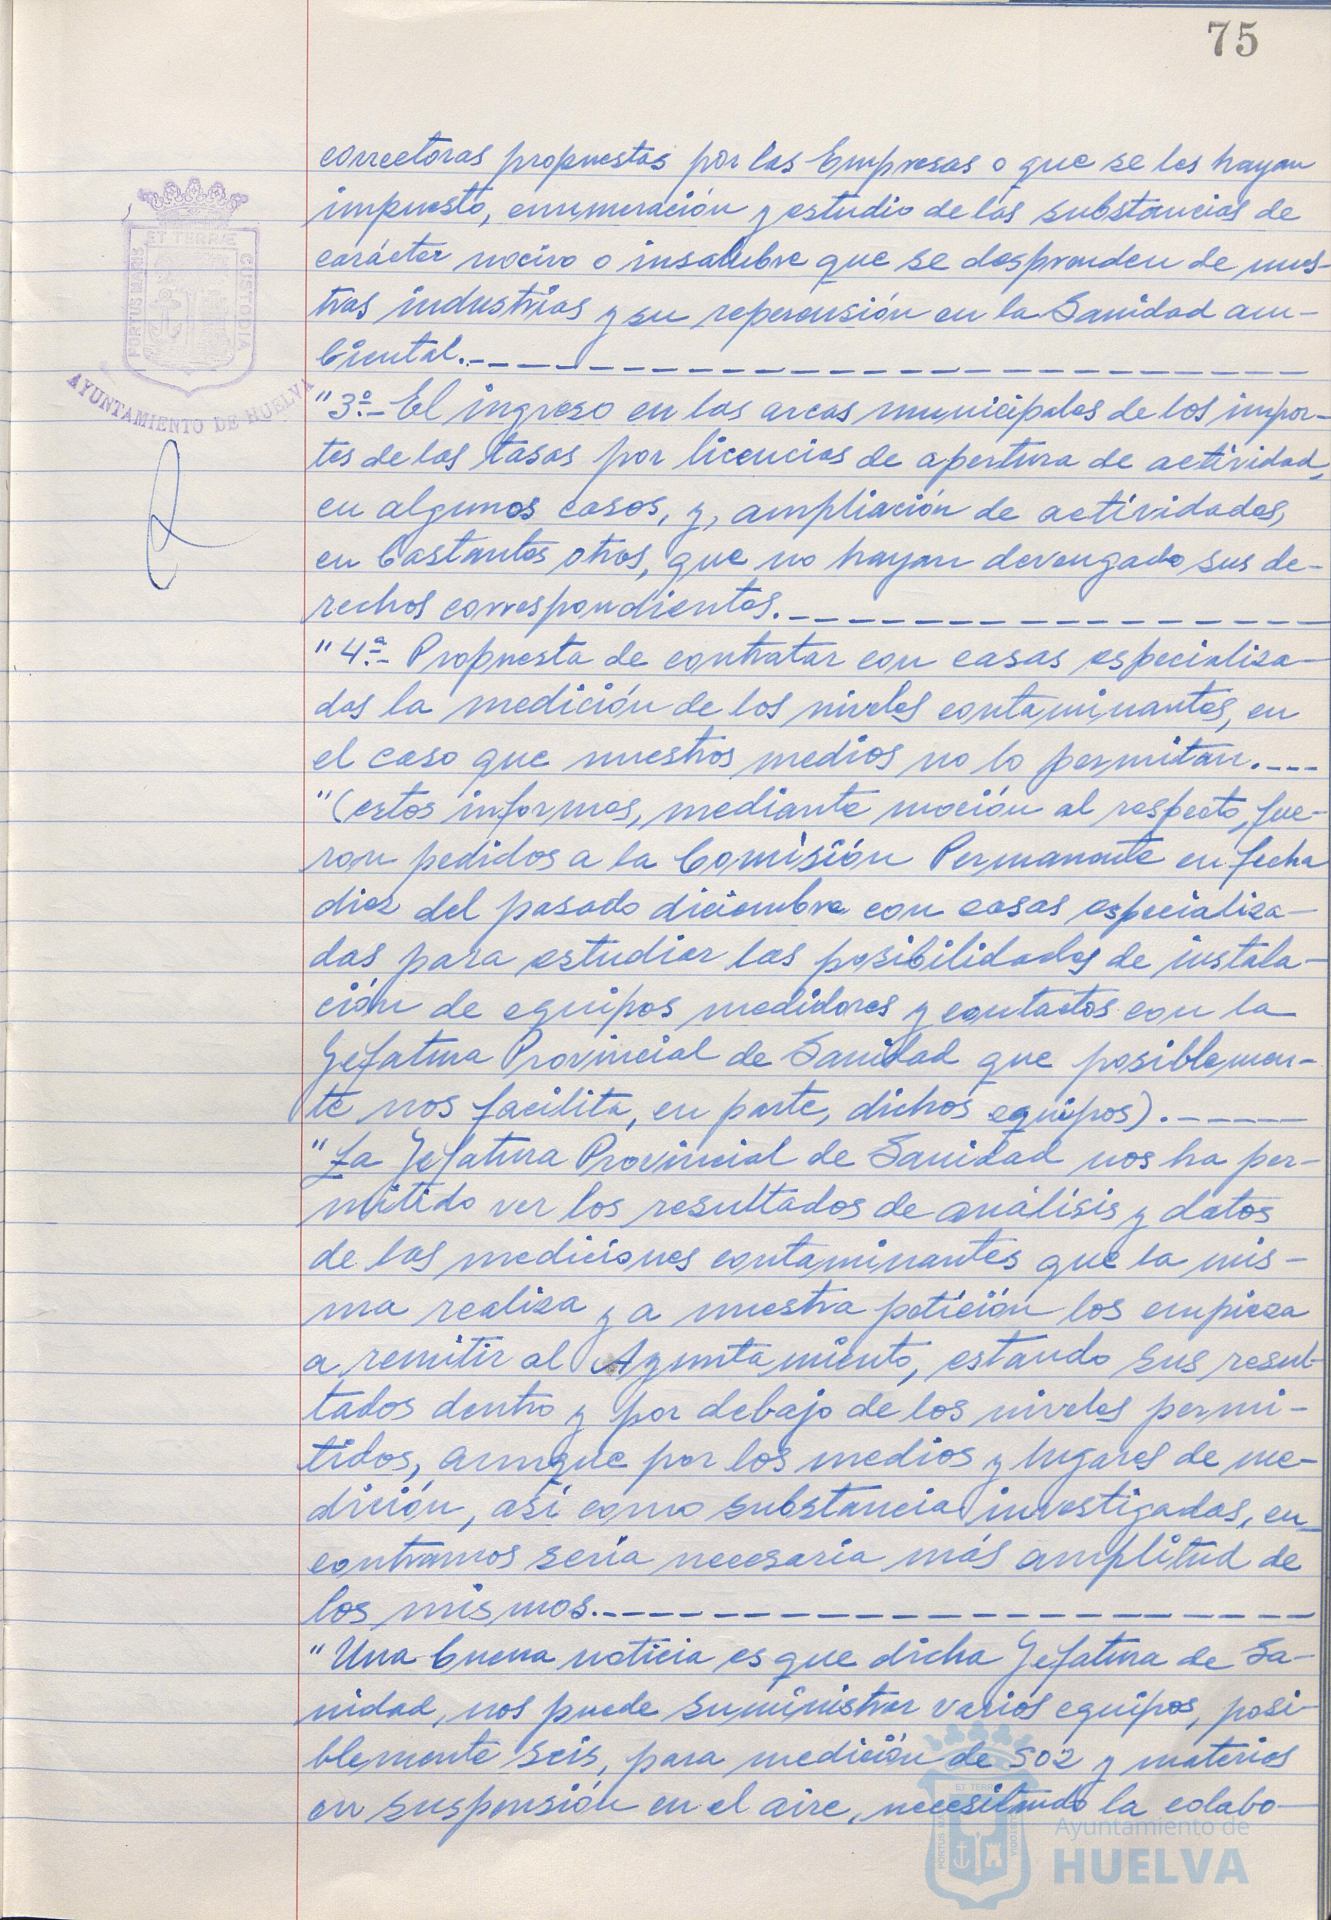 75
correctoras propuestas por las Empresas o que se les hayan
impuesto, enumeración y estudio de las substancias de
carácter nocivo o insalubre que se desprenden de nues-
tras industrias y su repercusión en la Sanidad am-
biental.
"3º.- El ingreso en las arcas municipales de los impor-
tes de las tasas por licencias de apertura de actividad,
en algunos casos, y, ampliación de actividades,
en bastantes otros, que no hayan devengado sus de-
rechos correspondientes.
"4ª.- Propuesta de contratar con casas especializa-
das la medición de los niveles contaminantes, en
el caso que nuestros medios no lo permitan.
"(estos informes, mediante moción al respecto, fue-
ron pedidos a la Comisión Permanente en fecha
diez del pasado diciembre con casas especializa-
das para estudiar las posibilidades de instala-
ción de equipos medidores y contactos con la
Jefatura Provincial de Sanidad que posiblemen-
te nos facilita, en parte, dichos equipos).
"La Jefatura Provincial de Sanidad nos ha per-
mitido ver los resultados de análisis y datos
de las mediciones contaminantes que la mis-
ma realiza y a nuestra petición los empieza
a remitir al Ayuntamiento, estando sus resul-
tados dentro y por debajo de los niveles permi-
tidos, aunque por los medios y lugares de me-
dición, así como substancia investigadas, en-
contramos sería necesaria más amplitud de
los mismos.
"Una buena noticia es que dicha Jefatura de Sa-
nidad, nos puede suministrar varios equipos, posi-
blemente seis, para medición de SO2 y materias
en suspensión en el aire, necesitando la colabo-
ET TERRÆ
PORTUS MARIS
CUSTODIA
AYUNTAMIENTO DE HUELVA
Ayuntamiento de
HUELVA